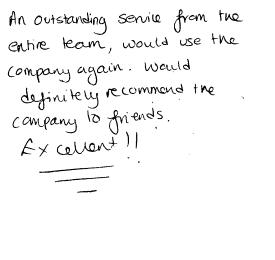 An outstanding service from the
entire team, would use the
company again. Would
definitely recommend the
company to friends.
Excellent!!